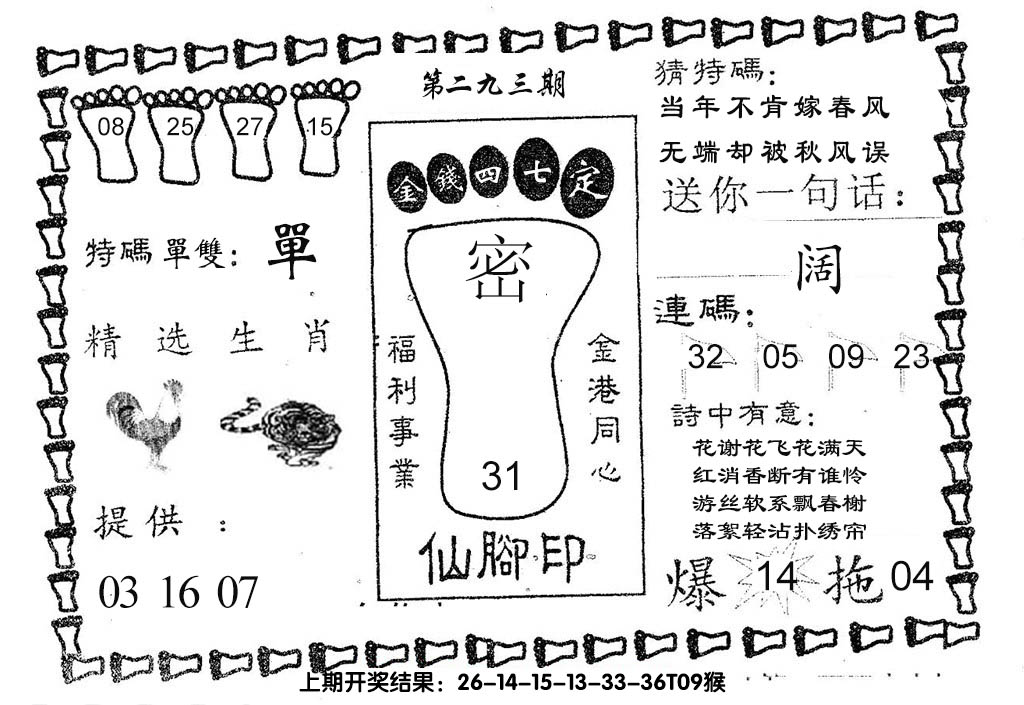 第二九三期
08 25 27 15
特碼單雙：單
精选生肖
提供：
03 16 07
金錢四七定
密
福利事業
金港同心
31
仙腳印
猜特碼：
当年不肯嫁春风
无端却被秋风误
送你一句话：
阔
連碼：
32 05 09 23
詩中有意：
花谢花飞花满天
红消香断有谁怜
游丝软系飘春榭
落絮轻沾扑绣帘
爆 14 拖 04
上期开奖结果：26-14-15-13-33-36T09猴